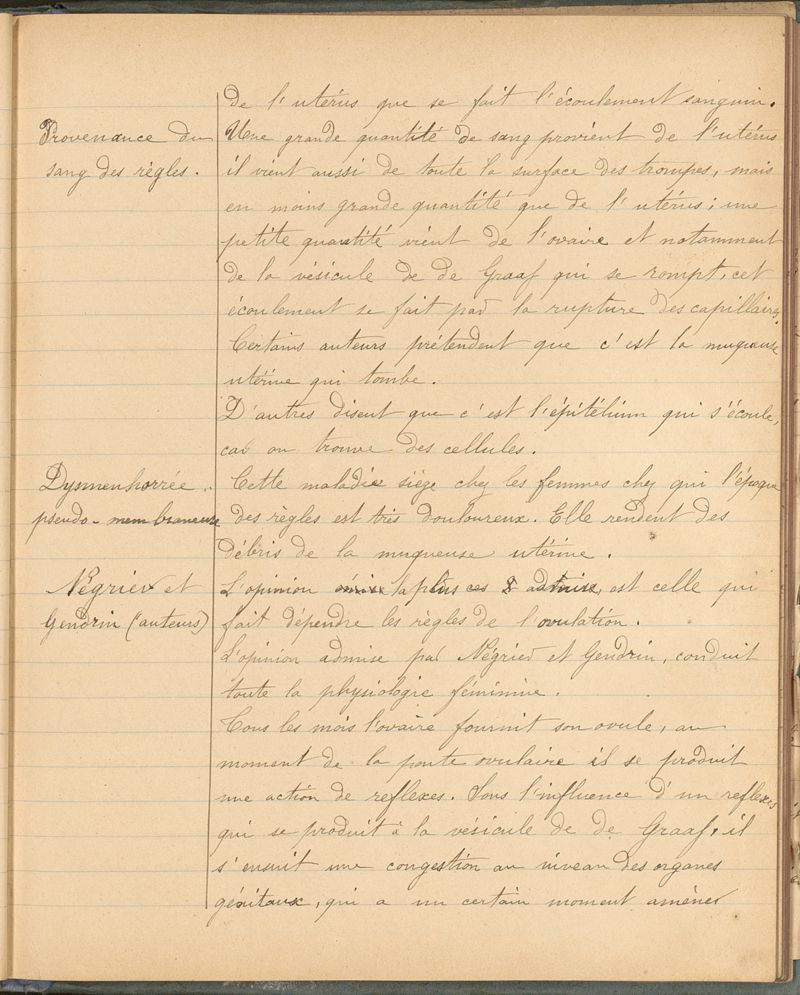 de l'utérus que se fait l'écoulement sanguin.
Provenance du
sang des règles.
Une grande quantité de sang provient de l'utérus
il vient aussi de toute la surface des trompes, mais
en moins grande quantité que de l'utérus ; une
petite quantité vient de l'ovaire et notamment
de la vésicule de de Graaf qui se rompt, cet
écoulement se fait par la rupture des capillaires.
Certains auteurs prétendent que c'est la muqueuse
utérine qui tombe.
D'autres disent que c'est l'épitélium qui s'écoule,
car on trouve des cellules.
Dysmenhorrée
pseudo-membraneuse
Cette maladie siège chez les femmes chez qui l'époque
des règles est très douloureux. Elle rendent des
débris de la muqueuse utérine.
Négrier et
Gendrin (auteurs)
L'opinion la plus admise, est celle qui
fait dépendre les règles de l'ovulation.
L'opinion admise par Négrier et Gendrin, conduit
toute la physiologie féminine.
Tous les mois l'ovaire fournit son ovule, au
moment de la ponte ovulaire il se produit
une action de reflexes. Sous l'influence d'un reflexes
qui se produit à la vésicule de de Graaf, il
s'ensuit une congestion au niveau des organes
génitaux, qui a un certain moment amènes